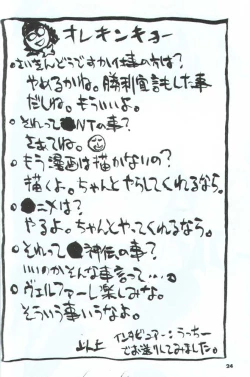 オレキンキョー
○さいきんどうですか仕事の方は?
やめるかね。勝利宣言もした事
だしね。もういいよ。
○それって●NTの事?
さぁてね。
○もう漫画は描かないの?
描くよ。ちゃんとやらしてくれるなら。
○●ニメは?
やるよ。ちゃんとやってくれるなら。
○それって●神伝の事?
いいのかそんな事言って…。
○ヴェルファーレ楽しみな。
そういう事いうなよ。
以上 インタビュアー:うっちー
でお送りしてみました。
24